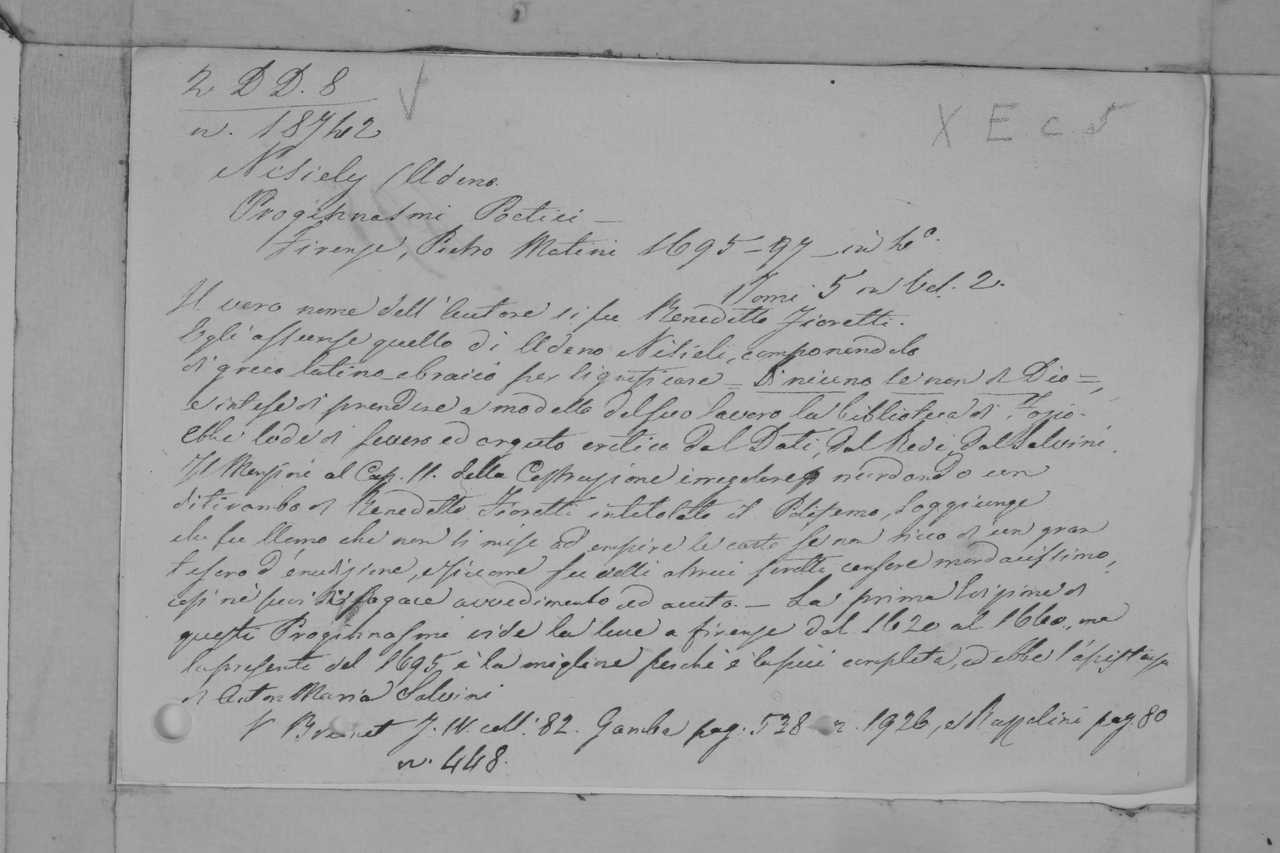 2 D D. 8
X E c. 5
n. 18742
Nisiely Udeno.
Proginnasmi Poetici —
Firenze, Pietro Matini 1695-97 - in 4°.
Tomi 5 in Vol. 2.
Il vero nome dell'Autore si fu Benedetto Fioretti.
Egli assunse quello di Udeno Nisieli, componendolo
di greco-latino-ebraico per significare = Di niuno se non di Dio =,
e intese di prendere a modello del suo lavoro la biblioteca di Fozio.
Ebbe lode di severo ed arguto critico dal Dati, dal Redi, dal Salvini.
Il Menzini al Cap. 11. della Costruzione irregolare, ricordando un
ditirambo di Benedetto Fioretti intitolato il Polifemo, soggiunge
che fu Uomo che non si mise ad empire le carte se non ricco di un gran
tesoro d'erudizione, e siccome fu delli altrui scritti censore mordacissimo,
così ne' suoi sagace avvedimento ed acuto. — La prima Edizione di
questi Proginnasmi vide la luce a Firenze dal 1620 al 1660, ma
la presente del 1695, è la migliore perchè è la più completa, ed ebbe l'assistenza
di Anton Maria Salvini
V. Brunet T. IV. coll. 82. Gamba pag. 538 n. 1926, e Razzolini pag. 80
n. 448.